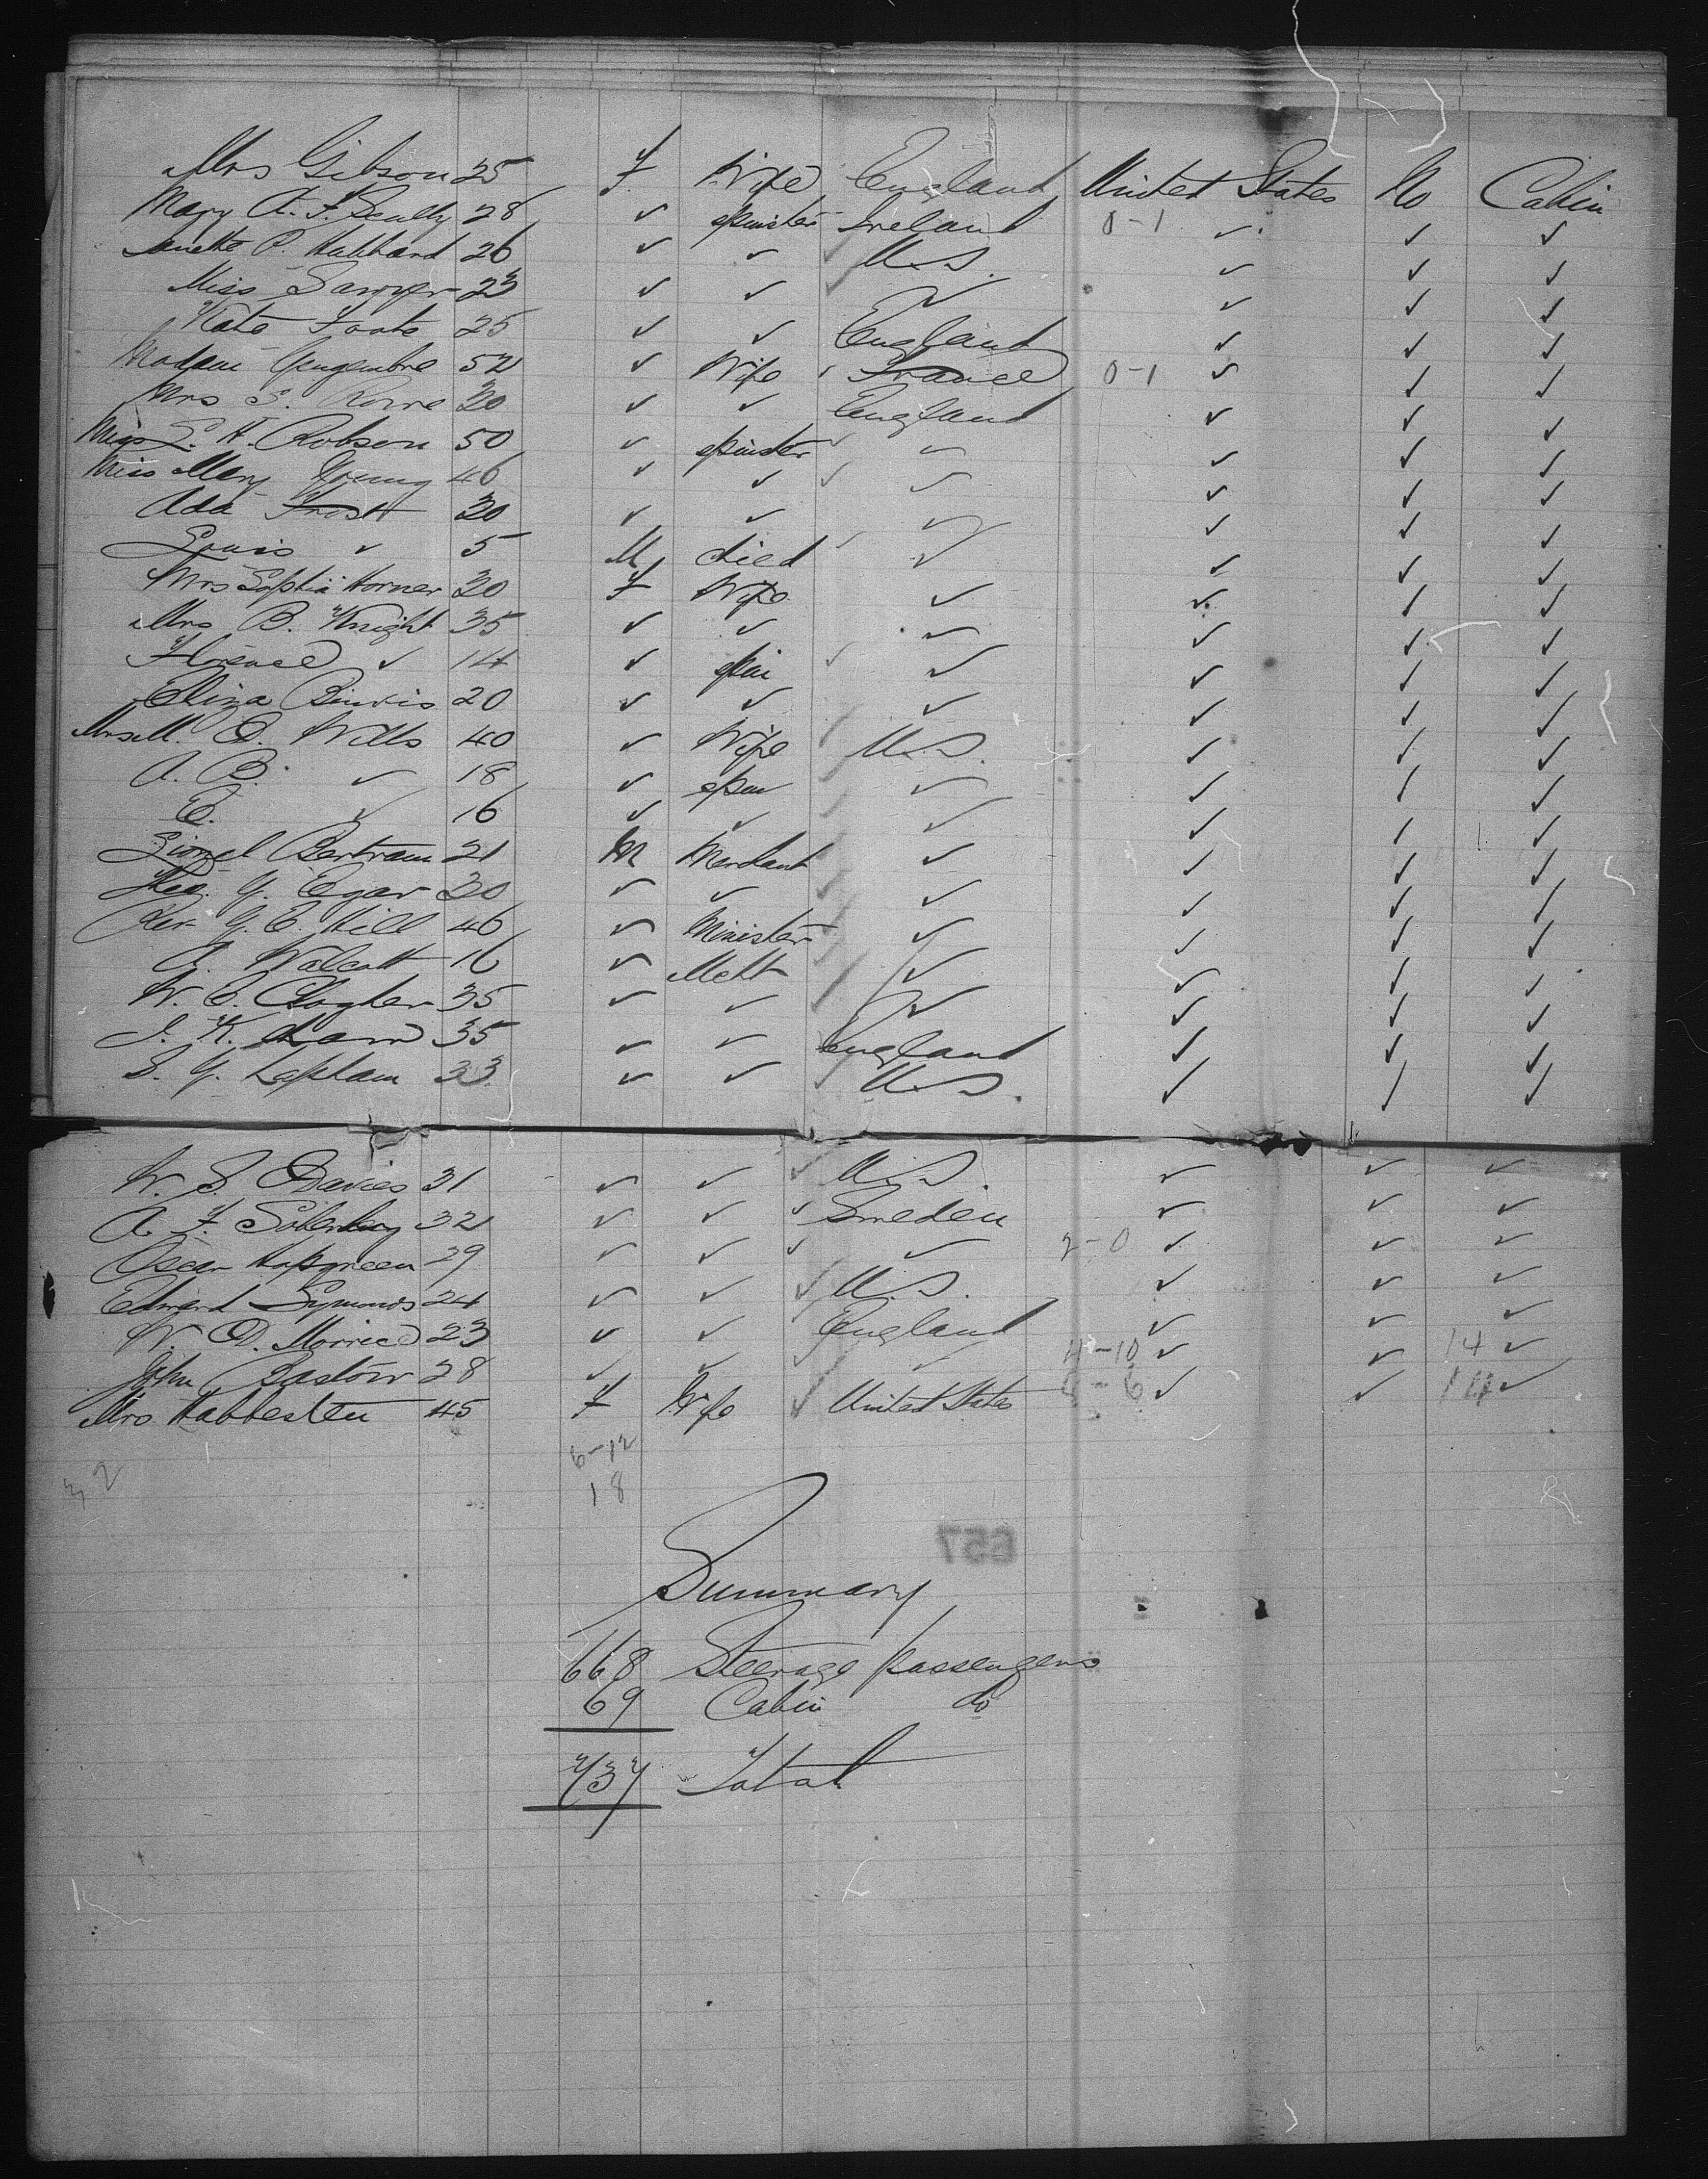 Mrs Gibson 25 F Wife England United States No Cabin
Mary A. F. Scully 28 ✓ spinster Ireland 0-1 ✓ ✓ ✓
Janette P. Hubbard 26 ✓ ✓ U.S. ✓ ✓ ✓
Miss Sawyer 23 ✓ ✓ ✓ ✓ ✓ ✓
Kate Foote 25 ✓ ✓ England ✓ ✓ ✓
Madam Gengembre 52 ✓ Wife France 0-1 ✓ ✓ ✓
Mrs S. Rowe 30 ✓ ✓ England ✓ ✓ ✓
Miss E. H. Robson 50 ✓ spinster ✓ ✓ ✓ ✓
Miss Mary Young 46 ✓ ✓ ✓ ✓ ✓ ✓
Ada Frost 30 ✓ ✓ ✓ ✓ ✓ ✓
Louis ✓ 5 M ✓ ✓ ✓ ✓
Mrs Sophia Horner 30 F Wife ✓ ✓ ✓ ✓
Mrs B. Knight 35 ✓ ✓ ✓ ✓ ✓ ✓
Florence ✓ 14 ✓ spin ✓ ✓ ✓ ✓
Eliza 20 ✓ ✓ ✓ ✓ ✓ ✓
Mrs M. D. Wills 40 ✓ Wife U.S. ✓ ✓ ✓
A. B. ✓ 18 ✓ spin ✓ ✓ ✓ ✓
E. ✓ 16 ✓ ✓ ✓ ✓ ✓ ✓
Lionel Bertram 21 M Merchant ✓ ✓ ✓ ✓
Theo. G. Egar 30 ✓ ✓ ✓ ✓ ✓ ✓
Rev G. E. Hill 46 ✓ Minister ✓ ✓ ✓ ✓
A. Walcott 16 ✓ Mcht ✓ ✓ ✓ ✓
W. C. Clogher 35 ✓ ✓ ✓ ✓ ✓ ✓
J. K. 35 ✓ ✓ England ✓ ✓ ✓
S. G. Lapham 33 ✓ ✓ U.S. ✓ ✓ ✓
W. S. Davies 31 ✓ ✓ U.S. ✓ ✓ ✓
A. F. Soderberg 32 ✓ ✓ Sweden ✓ ✓ ✓
Oscar Hopgreen 29 ✓ ✓ ✓ 2-0 ✓ ✓ ✓
Edward Symonds 24 ✓ ✓ U.S. ✓ ✓ ✓
W. D. Morrice 23 ✓ ✓ England ✓ ✓ ✓
John Bastow 28 ✓ ✓ ✓ 4-10 ✓ ✓ 14 ✓
Mrs Habbesten 45 F Wife United States 4-6 ✓ ✓ 14 ✓
6-12
32
18
657
Summary
668 Steerage passengers
69 Cabin do
737 Total